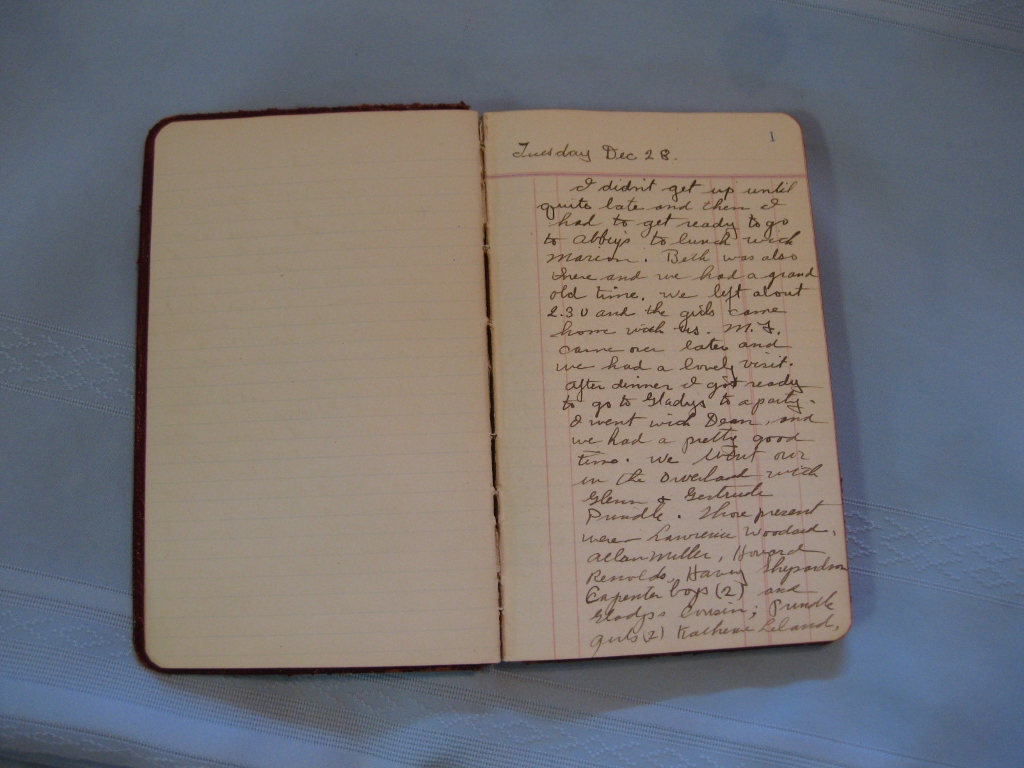 1
Tuesday Dec 28.
I didn't get up until
quite late and then I
had to get ready to go
to Abbeys to lunch with
Marion. Beth was also
there and we had a grand
old time. We left about
2.30 and the girls came
home with us. M. J.
came over later and
we had a lovely visit.
After dinner I got ready
to go to Gladys to a party.
I went with Dean, and
we had a pretty good
time. We went out
in the Overland with
Glenn & Gertrude
Prindle. Those present
were Lawrence Woodard,
Allan Miller, Howard
Renolds, Harry Shepardson
Carpenter boys (2) and
Gladys Cousin; Prindle
girls (2) Katherine Leland,